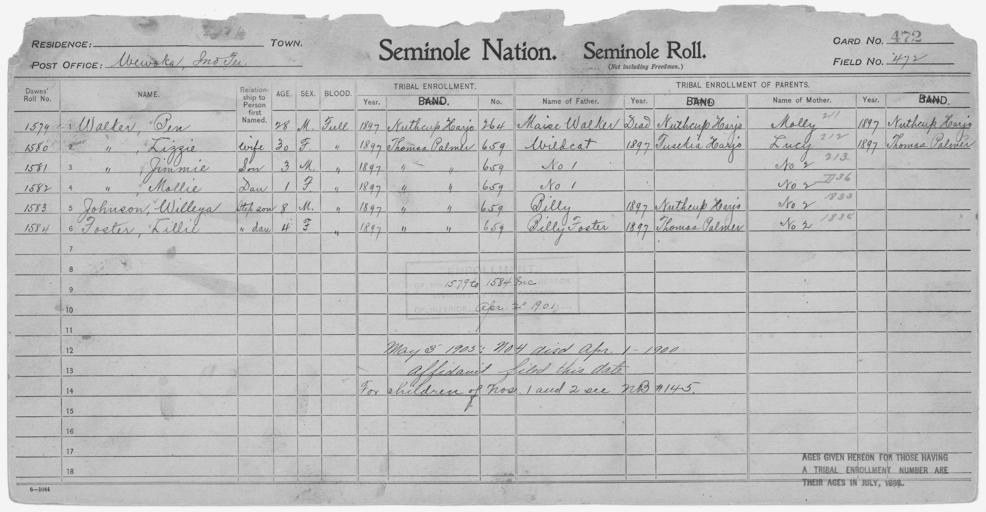 RESIDENCE: TOWN. Seminole Nation. Seminole Roll. CARD NO. 472
POST OFFICE: Wewoka, Ind Ter. (Not including Freedmen.) FIELD NO. 472
Dawes' Roll No. NAME. Relationship to Person first Named. AGE. SEX. BLOOD. TRIBAL ENROLLMENT. TRIBAL ENROLLMENT OF PARENTS.
Year. BAND. No. Name of Father. Year. BAND. Name of Mother. Year. BAND.
1579 1 Walker, Pen 28 M. Full 1897 Nuthcup Harjo 264 Walker Dead Nuthcup Harjo Molly 211 1897 Nuthcup Harjo
1580 2 " , Lizzie wife 30 F. " 1897 Thomas Palmer 659 Wildcat 1897 Tusekia Harjo Lucy 212 1897 Thomas Palmer
1581 3 " , Jimmie Son 3 M. " 1897 " " 659 No 1 No 2 213
1582 4 " , Mollie Dau 1 F. " 1897 " " 659 No 1 No 2
1583 5 Johnson, Willeya Step son 8 M. " 1897 " " 659 Billy 1897 Nuthcup Harjo No 2
1584 6 Foster, Lillie " dau 4 F. " 1897 " " 659 Billy Foster 1897 Thomas Palmer No 2
7
8
ENROLLMENT
9 1579 to 1584 Inc
10 Apr 2" 1901
11
12 May 5" 1905: No 4 died Apr. 1 - 1900
13 Affidavit filed this date
14 For children of Nos. 1 and 2 see NB #145.
15
16
17 AGES GIVEN HEREON FOR THOSE HAVING
A TRIBAL ENROLLMENT NUMBER ARE
18 THEIR AGES IN JULY, 1898.
6-1044